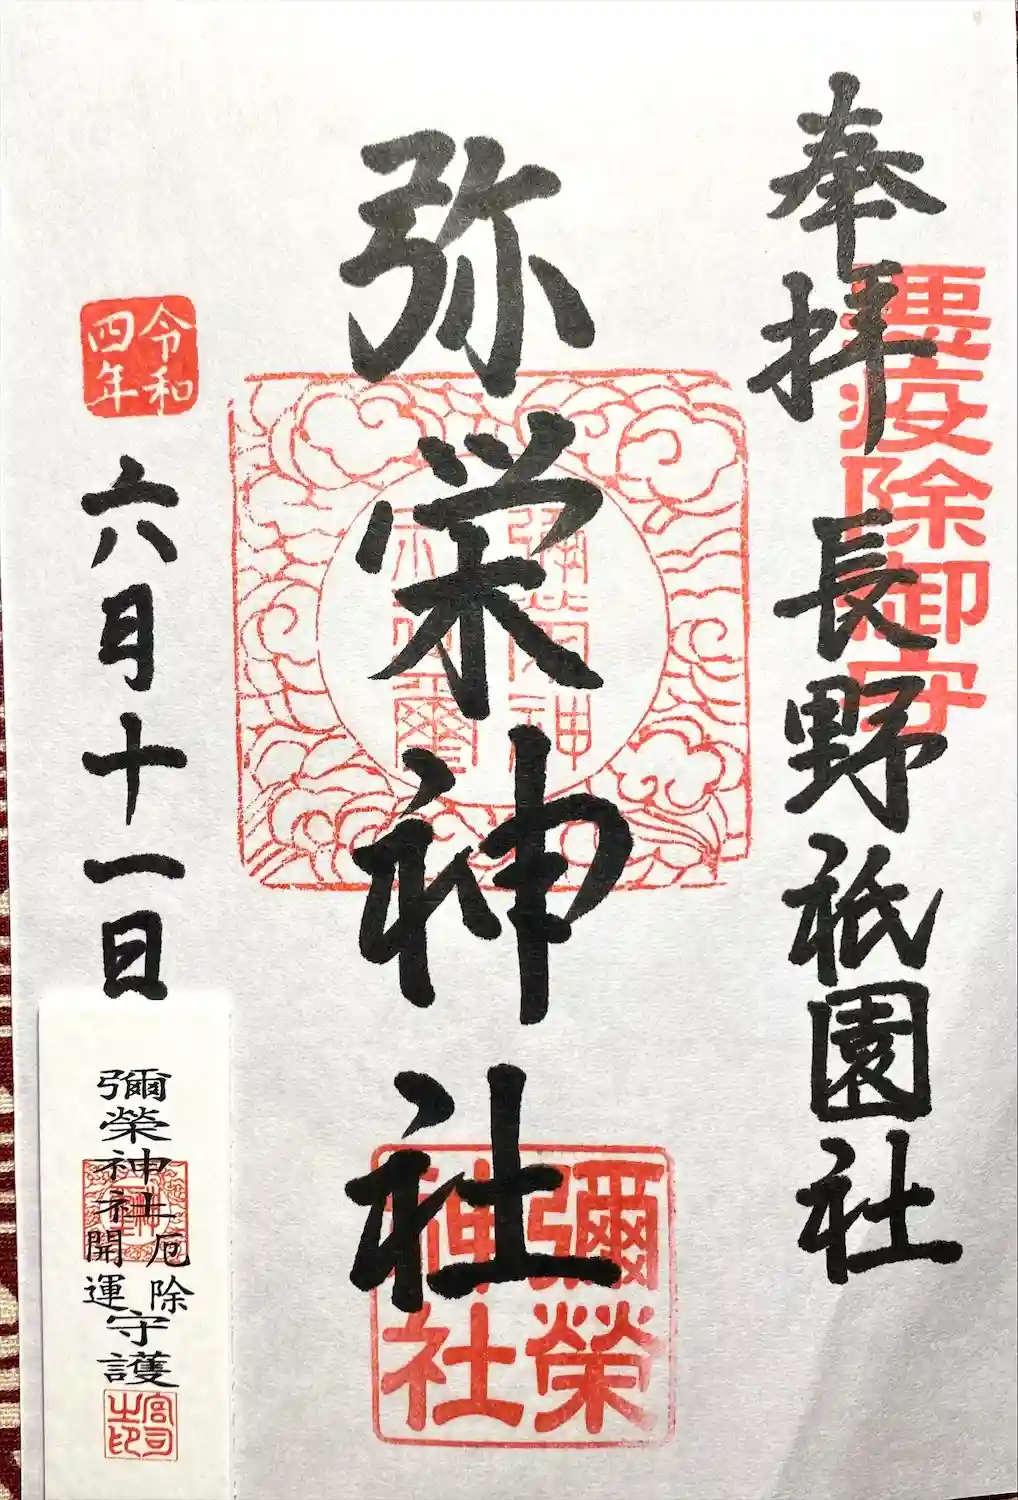 奉拝 長野祇園社
悪疫除御守
弥栄神社
彌榮神社
令和
四年
六月十一日
彌榮神社
厄除
開運
守護
宮司
之印